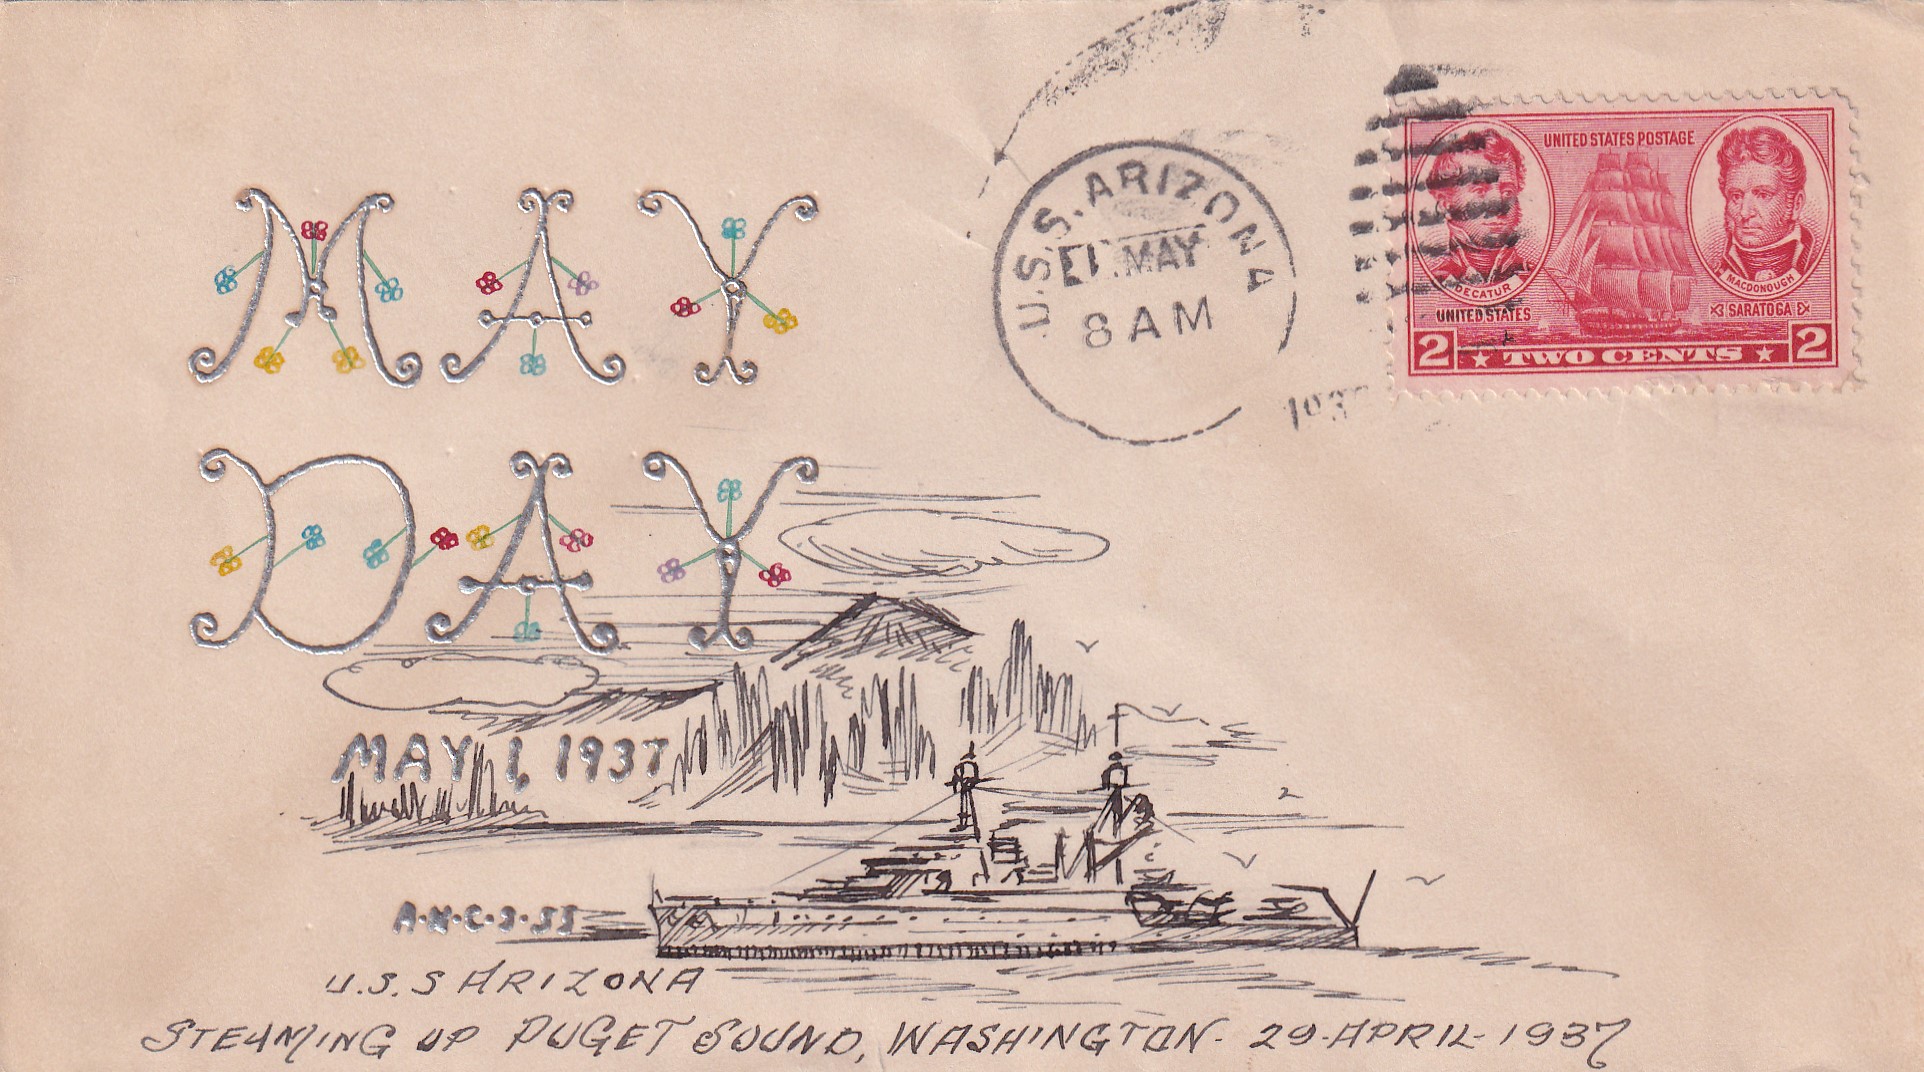 MAY
DAY
MAY 1, 1937
A·N·C·S·55
U.S.S ARIZONA
STEAMING UP PUGET SOUND, WASHINGTON- 29-APRIL-1937
U.S.S. ARIZONA
MAY
8 AM
193
UNITED STATES POSTAGE
DECATUR
MACDONOUGH
UNITED STATES
SARATOGA
2 TWO CENTS 2